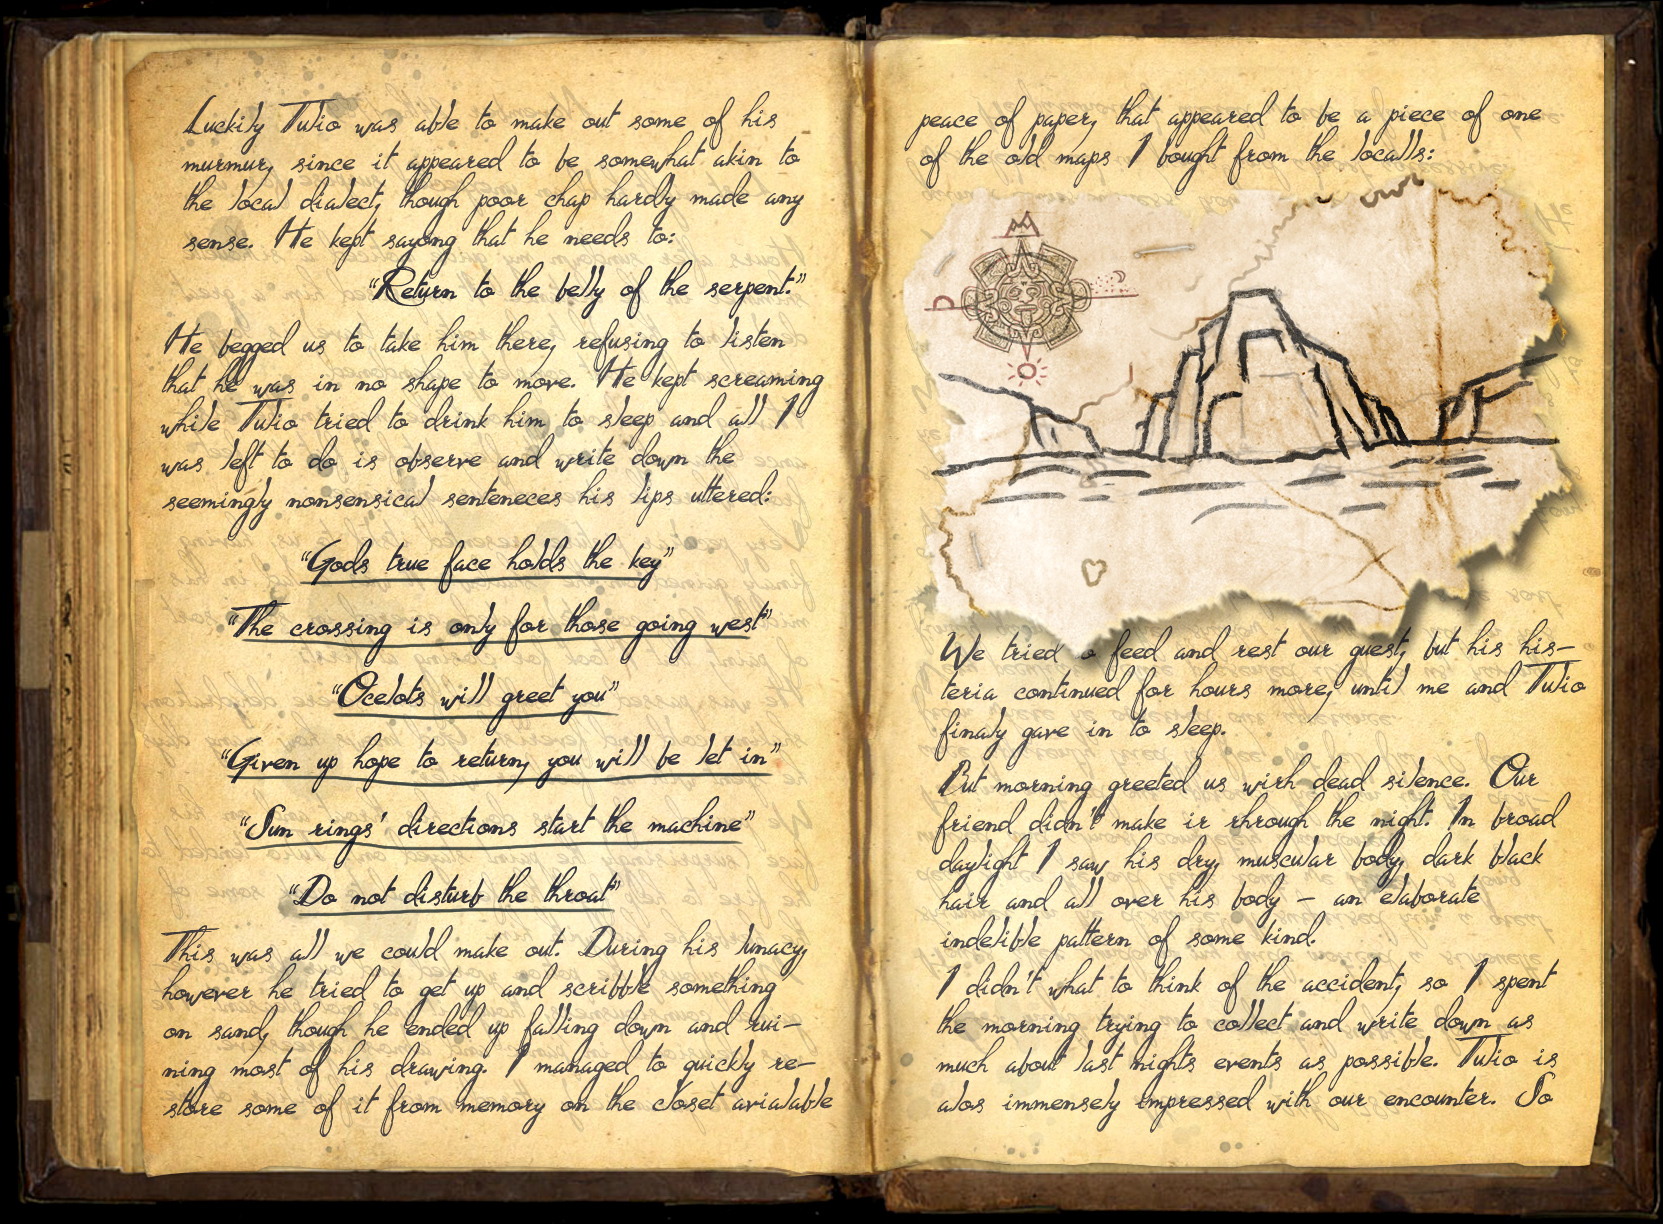 Luckily Tulio was able to make out some of his
murmur, since it appeared to be somewhat akin to
the local dialect, though poor chap hardly made any
sense. He kept sayong that he needs to:
“Return to the belly of the serpent.”
He begged us to take him there, refusing to listen
that he was in no shape to move. He kept screaming
while Tulio tried to drink him to sleep and all I
was left to do is observe and write down the
seemingly nonsensical senteneces his lips uttered:
“Gods true face holds the key”
“The crossing is only for those going west”
“Ocelots will greet you”
“Given up hope to return, you will be let in”
“Sun rings' directions start the machine”
“Do not disturb the throat”
This was all we could make out. During his lunacy,
however he tried to get up and scribble something
on sand, though he ended up falling down and rui-
ning most of his drawing. I managed to quickly re-
store some of it from memory on the closet avialable
peace of paper, that appeared to be a piece of one
of the old maps I bought from the localls:
We tried o feed and rest our guest, but his his-
teria continued for hours more, until me and Tulio
finaly gave in to sleep.
But morning greeted us wirh dead silence. Our
friend didn't make ir rhrough the night. In broad
daylight I saw his dry, muscular body, dark black
hair and all over his body - an elaborate
indelible pattern of some kind.
I didn't what to think of the accident, so I spent
the morning trying to collect and write down as
much about last nights events as possible. Tulio is
alos immensely impressed with our encounter. So